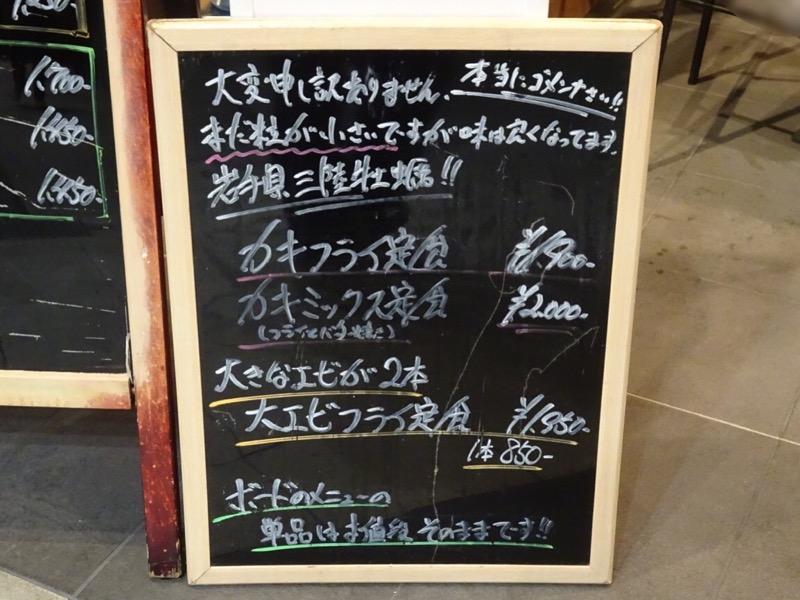 1.700-
1.450-
1.450-
大変申し訳ありません、本当にゴメンナさい!!
まだ粒が小さいですが味は良くなってます。
岩手県三陸牡蠣!!
カキフライ定食 ¥1.900-
カキミックス定食 ¥2.000-
(フライとバター焼き)
大きなエビが2本
大エビフライ定食 ¥1.950-
1本850-
ボードのメニューの
単品はお値段そのままです!!